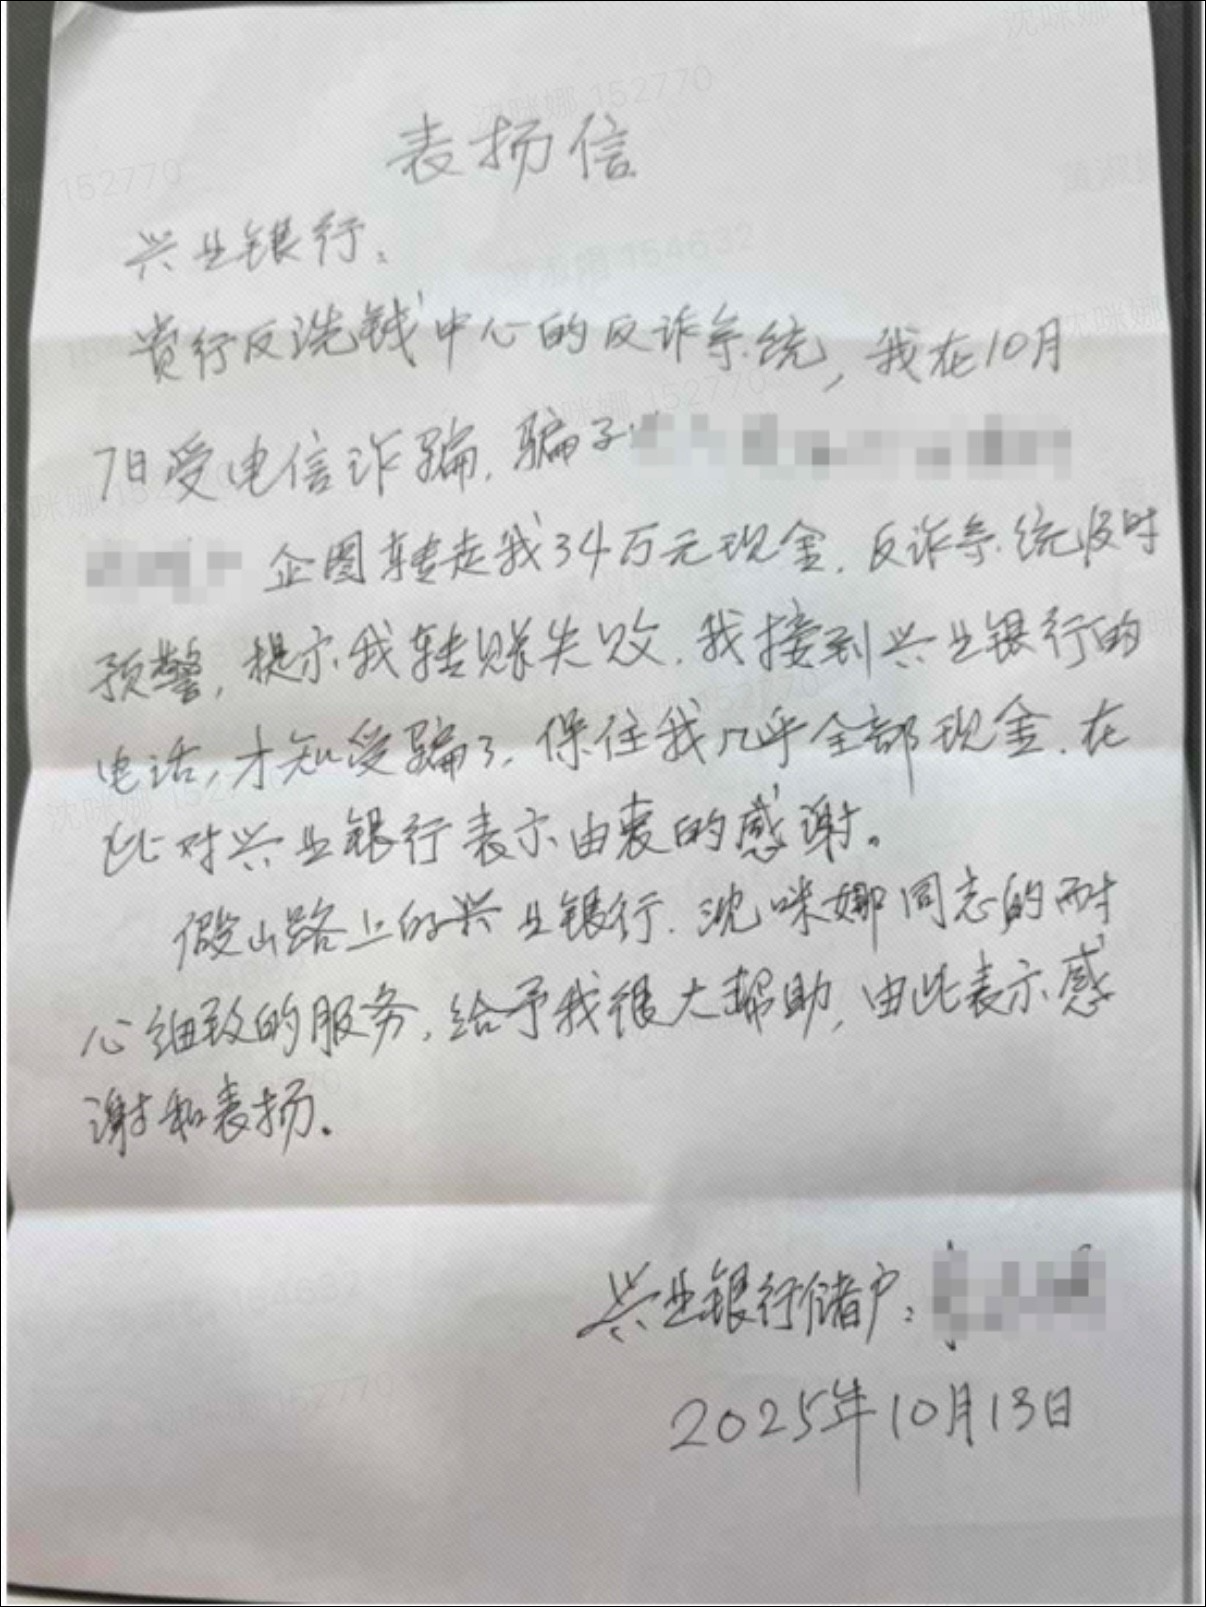 表扬信
兴业银行:
贵行反洗钱中心的反诈系统,我在10月
7日受电信诈骗,骗子
企图转走我34万元现金,反诈系统及时
预警,提示我转账失败,我接到兴业银行的
电话,才知受骗了,保住我几乎全部现金,在
此对兴业银行表示由衷的感谢。
假山路上的兴业银行,沈咪娜同志的耐
心细致的服务,给予我很大帮助,由此表示感
谢和表扬。
兴业银行储户:
2025年10月13日